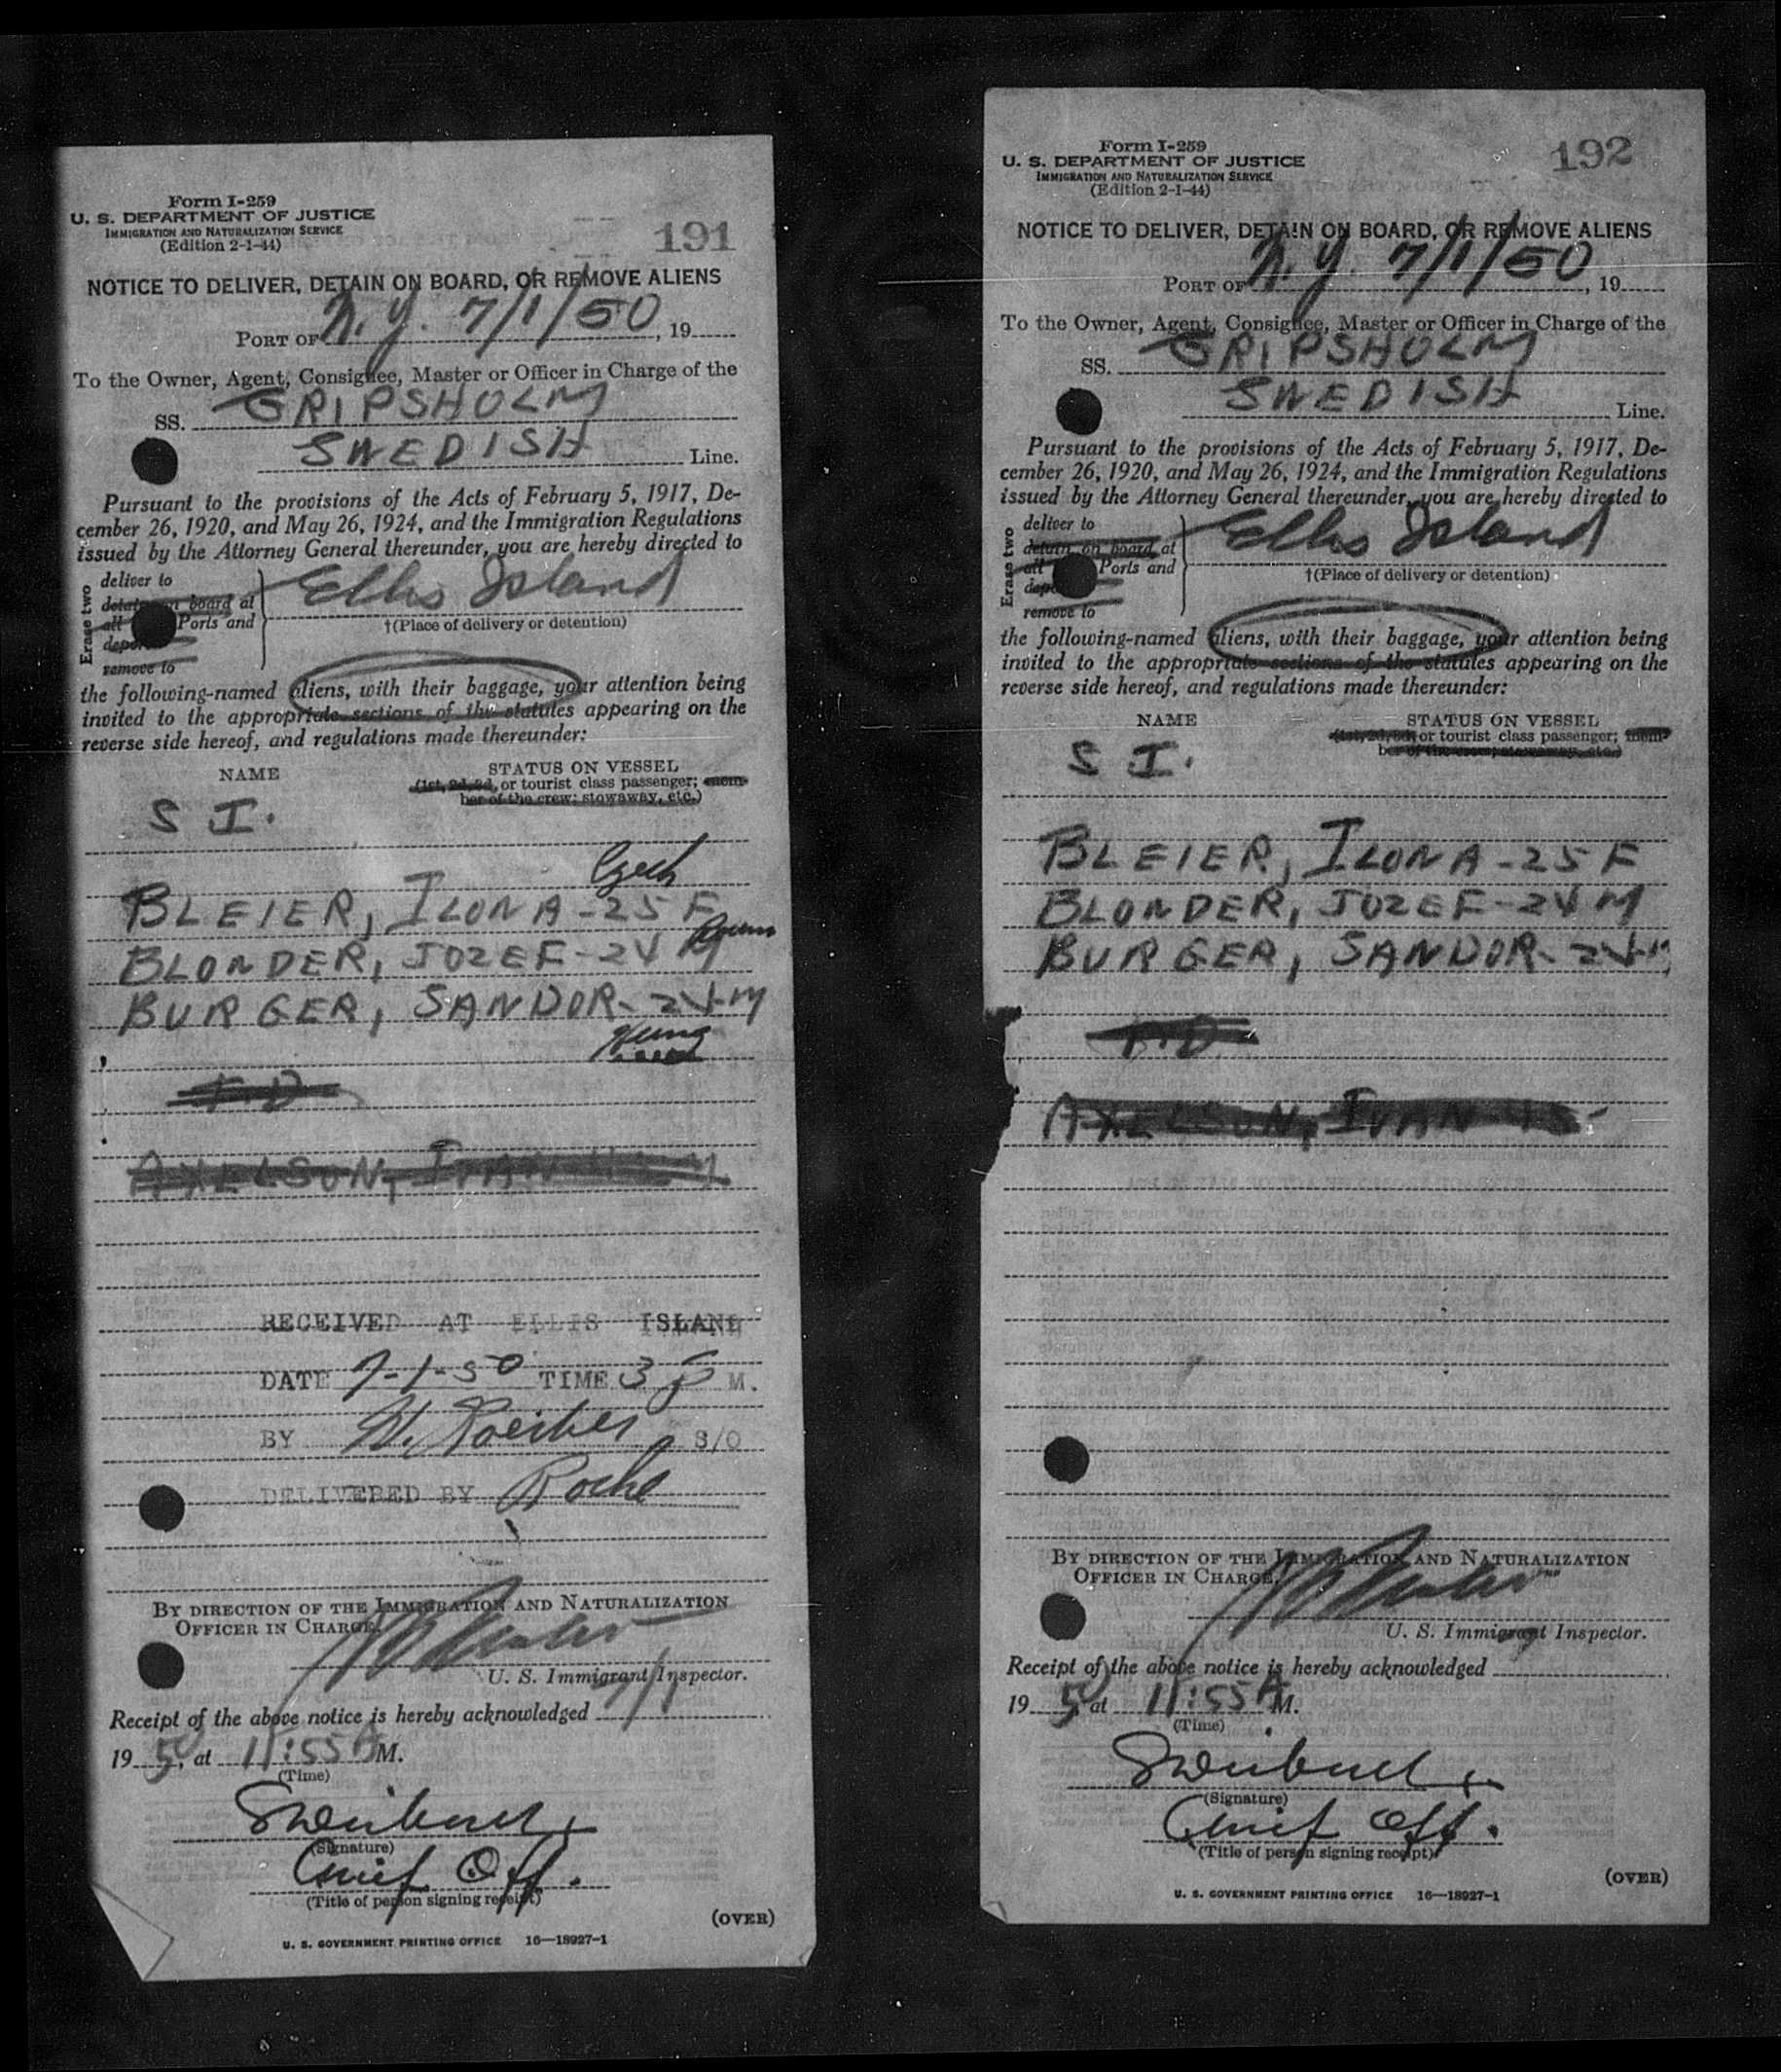 Form I-259
U. S. DEPARTMENT OF JUSTICE
IMMIGRATION AND NATURALIZATION SERVICE
(Edition 2-1-44)
191
NOTICE TO DELIVER, DETAIN ON BOARD, OR REMOVE ALIENS
PORT OF N.Y. 7/1/50, 19
To the Owner, Agent, Consignee, Master or Officer in Charge of the
SS. GRIPSHOLM
SWEDISH Line.
Pursuant to the provisions of the Acts of February 5, 1917, De-
cember 26, 1920, and May 26, 1924, and the Immigration Regulations
issued by the Attorney General thereunder, you are hereby directed to
Erase two
deliver to
detain on board at
all Ports and
remove to
Ellis Island
†(Place of delivery or detention)
the following-named aliens, with their baggage, your attention being
invited to the appropriate sections of the statutes appearing on the
reverse side hereof, and regulations made thereunder:
NAME STATUS ON VESSEL
(1st, 2d, 3d, or tourist class passenger; mem-
ber of the crew; stowaway, etc.)
S I.
Czech
BLEIER, ILONA - 25 F
BLONDER, JOZEF - 24 M
BURGER, SANDOR - 24 M
Hung
AXELSON, IVAN
RECEIVED AT ELLIS ISLAND
DATE 7-1-50 TIME 3 P M.
BY S/O
DELIVERED BY Roche
BY DIRECTION OF THE IMMIGRATION AND NATURALIZATION
OFFICER IN CHARGE.
U. S. Immigrant Inspector.
Receipt of the above notice is hereby acknowledged 7/1
1950, at 11:55 A M.
(Time)
(Signature)
Chief Off.
(Title of person signing receipt)
(OVER)
U. S. GOVERNMENT PRINTING OFFICE 16—18927-1
Form I-259
U. S. DEPARTMENT OF JUSTICE
IMMIGRATION AND NATURALIZATION SERVICE
(Edition 2-1-44)
192
NOTICE TO DELIVER, DETAIN ON BOARD, OR REMOVE ALIENS
PORT OF N.Y. 7/1/50, 19
To the Owner, Agent, Consignee, Master or Officer in Charge of the
SS. GRIPSHOLM
SWEDISH Line.
Pursuant to the provisions of the Acts of February 5, 1917, De-
cember 26, 1920, and May 26, 1924, and the Immigration Regulations
issued by the Attorney General thereunder, you are hereby directed to
Erase two
deliver to
detain on board at
all Ports and
remove to
Ellis Island
†(Place of delivery or detention)
the following-named aliens, with their baggage, your attention being
invited to the appropriate sections of the statutes appearing on the
reverse side hereof, and regulations made thereunder:
NAME STATUS ON VESSEL
(1st, 2d, 3d, or tourist class passenger; mem-
ber of the crew; stowaway, etc.)
S I.
BLEIER, ILONA - 25 F
BLONDER, JOZEF - 24 M
BURGER, SANDOR - 24 M
AXELSON, IVAN
BY DIRECTION OF THE IMMIGRATION AND NATURALIZATION
OFFICER IN CHARGE.
U. S. Immigrant Inspector.
Receipt of the above notice is hereby acknowledged
1950, at 11:55 A M.
(Time)
(Signature)
Chief Off.
(Title of person signing receipt)
(OVER)
U. S. GOVERNMENT PRINTING OFFICE 16—18927-1